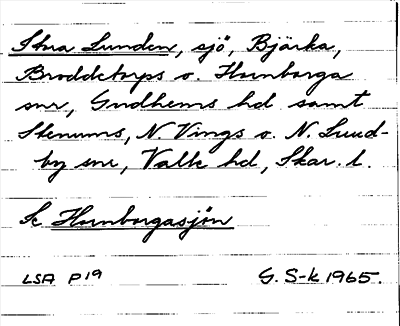 Stora Lunden, sjö, Bjärka,
Broddetorps o. Hornborga
snr, Gudhems hd samt
Stenums, N. Vings o. N. Lund-
by snr, Valle hd, Skar. l.
Se Hornborgasjön
LSA P19 G. S-k 1965.